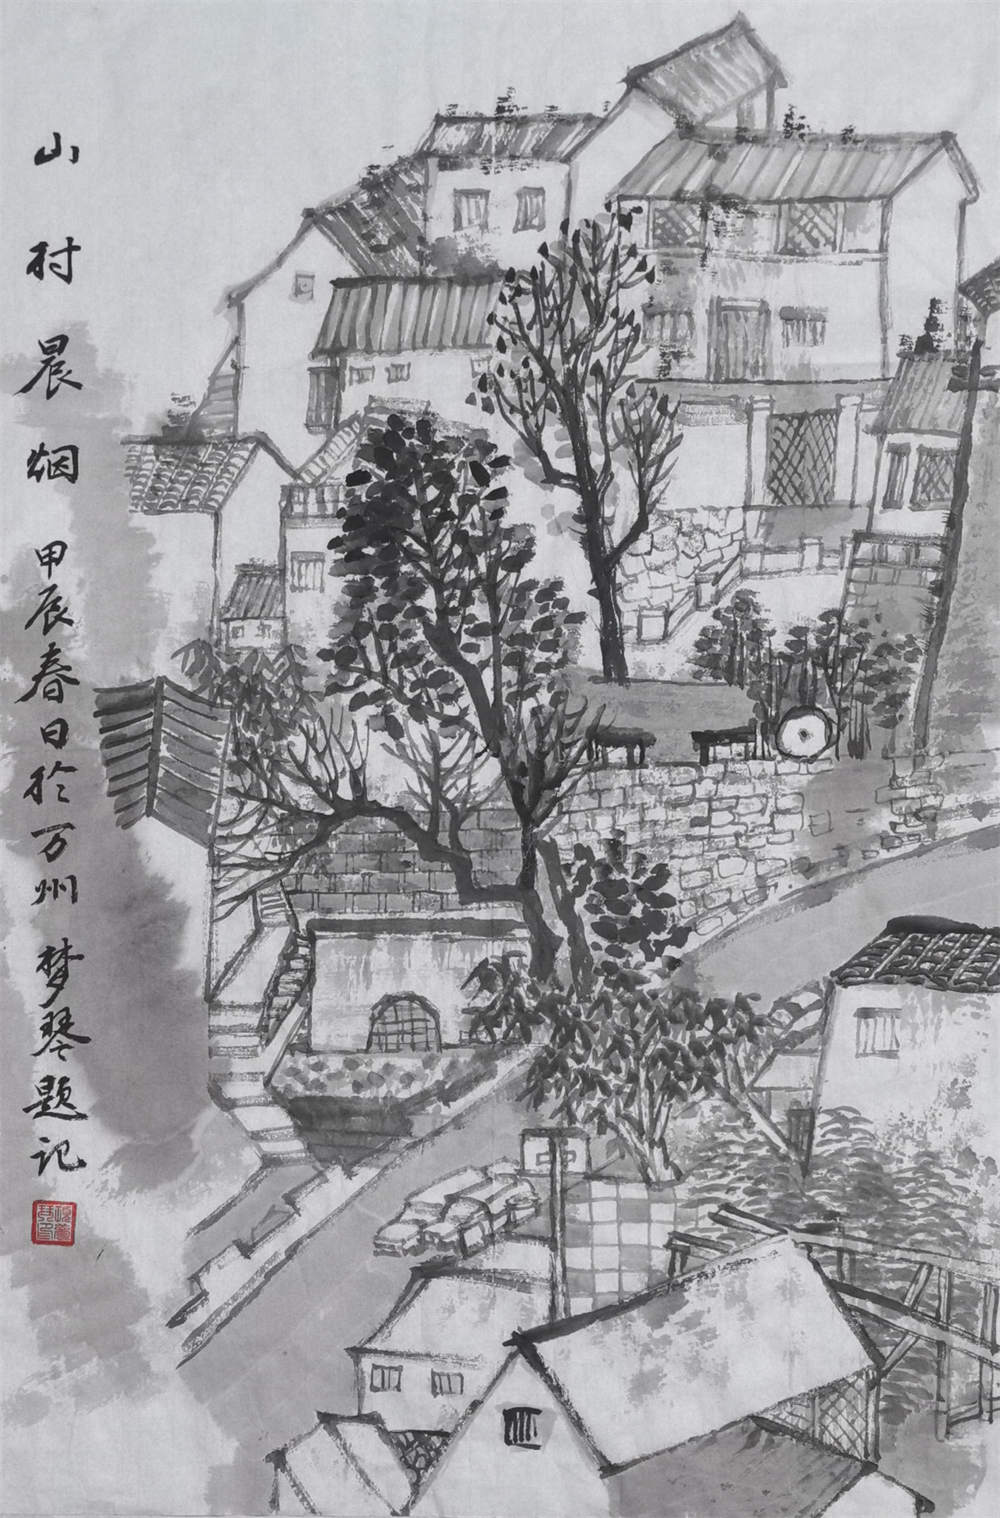 山村晨烟 甲辰春日於万州梦琴题记